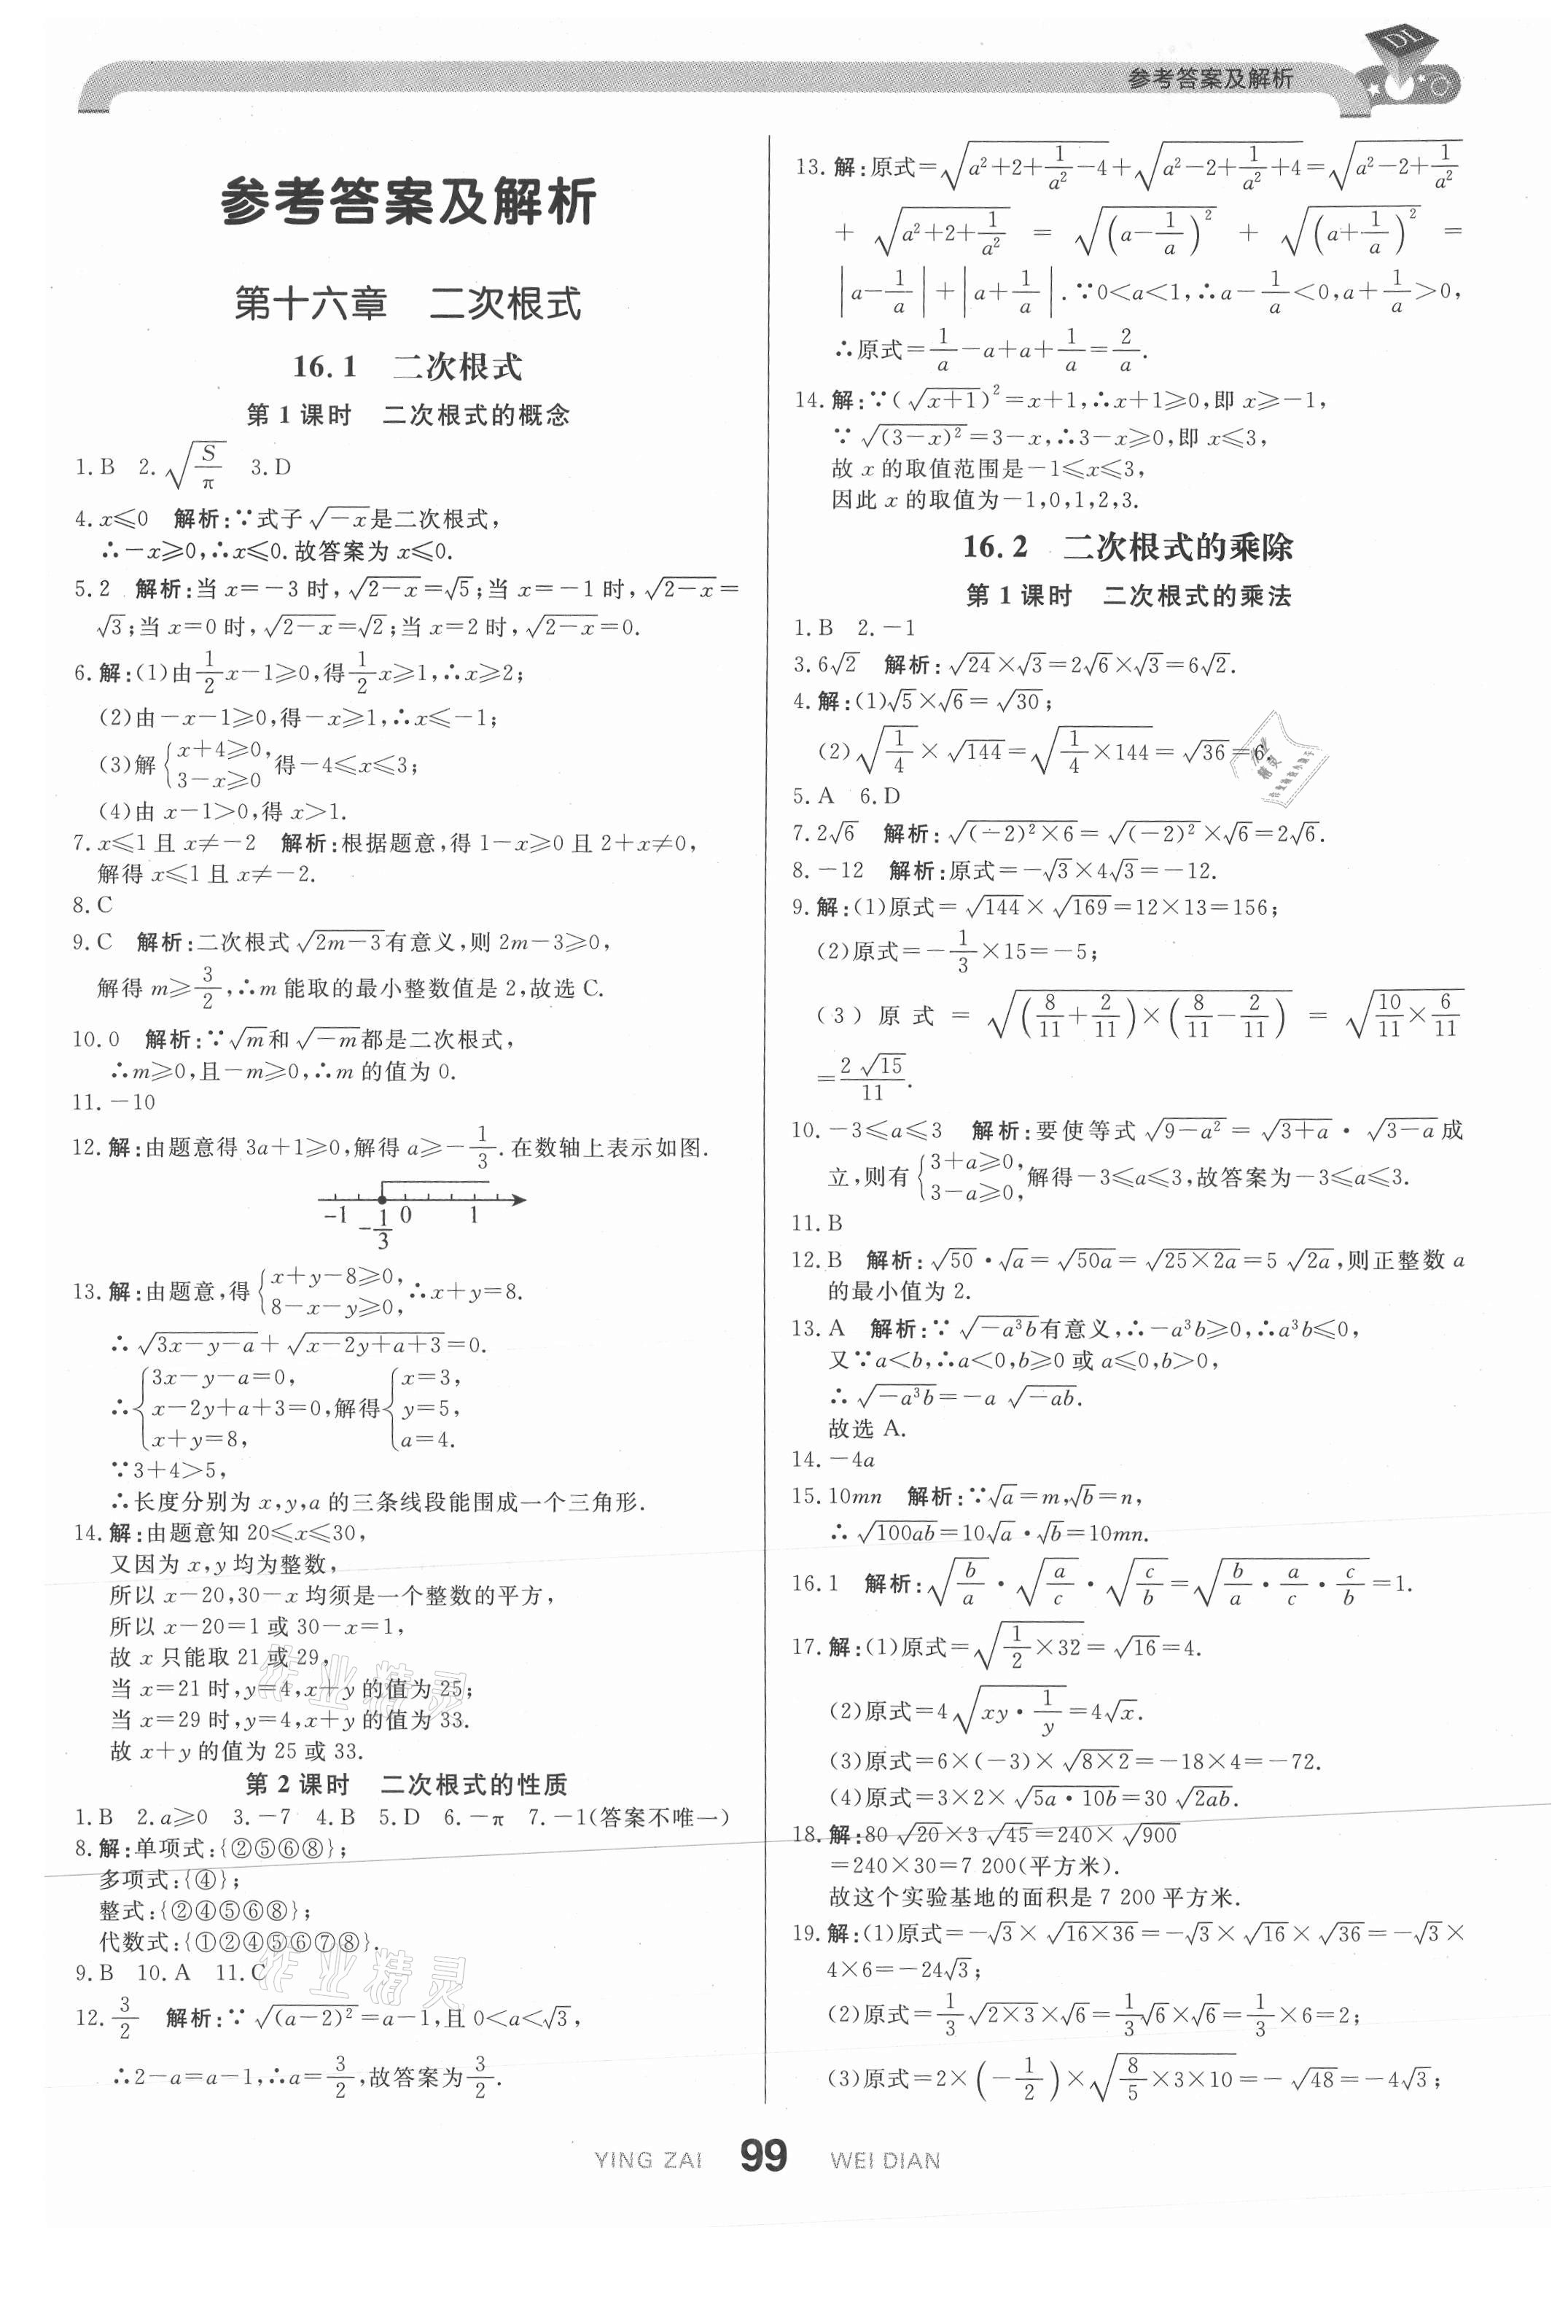 参考答案及解析
DL
参考答案及解析
第十六章 二次根式
16.1 二次根式
第1课时 二次根式的概念
1.B 2.√(S/π) 3.D
4.x≤0 解析:∵式子√(-x)是二次根式,
∴-x≥0,∴x≤0.故答案为x≤0.
5.2 解析:当x=-3时,√(2-x)=√5;当x=-1时,√(2-x)=
√3;当x=0时,√(2-x)=√2;当x=2时,√(2-x)=0.
6.解:(1)由1/2x-1≥0,得1/2x≥1,∴x≥2;
(2)由-x-1≥0,得-x≥1,∴x≤-1;
(3)解{x+4≥0, 3-x≥0 得-4≤x≤3;
(4)由x-1>0,得x>1.
7.x≤1且x≠-2 解析:根据题意,得1-x≥0且2+x≠0,
解得x≤1且x≠-2.
8.C
9.C 解析:二次根式√(2m-3)有意义,则2m-3≥0,
解得m≥3/2,∴m能取的最小整数值是2,故选C.
10.0 解析:∵√m和√(-m)都是二次根式,
∴m≥0,且-m≥0,∴m的值为0.
11.-10
12.解:由题意得3a+1≥0,解得a≥-1/3.在数轴上表示如图.
-1 -1/3 0 1
13.解:由题意,得{x+y-8≥0, 8-x-y≥0, ∴x+y=8.
∴√(3x-y-a)+√(x-2y+a+3)=0.
∴{3x-y-a=0, x-2y+a+3=0, x+y=8, 解得{x=3, y=5, a=4.
∵3+4>5,
∴长度分别为x,y,a的三条线段能围成一个三角形.
14.解:由题意知20≤x≤30,
又因为x,y均为整数,
所以x-20,30-x均须是一个整数的平方,
所以x-20=1或30-x=1,
故x只能取21或29,
当x=21时,y=4,x+y的值为25;
当x=29时,y=4,x+y的值为33.
故x+y的值为25或33.
第2课时 二次根式的性质
1.B 2.a≥0 3.-7 4.B 5.D 6.-π 7.-1(答案不唯一)
8.解:单项式:{②⑤⑥⑧};
多项式:{④};
整式:{②④⑤⑥⑧};
代数式:{①②④⑤⑥⑦⑧}.
9.B 10.A 11.C
12.3/2 解析:∵√((a-2)²)=a-1,且0<a<√3,
∴2-a=a-1,∴a=3/2,故答案为3/2.
13.解:原式=√(a²+2+1/a²-4)+√(a²-2+1/a²+4)=√(a²-2+1/a²)
+√(a²+2+1/a²)=√((a-1/a)²)+√((a+1/a)²)=
|a-1/a|+|a+1/a|.∵0<a<1,∴a-1/a<0,a+1/a>0,
∴原式=1/a-a+a+1/a=2/a.
14.解:∵(√(x+1))²=x+1,∴x+1≥0,即x≥-1,
∵√((3-x)²)=3-x,∴3-x≥0,即x≤3,
故x的取值范围是-1≤x≤3,
因此x的取值为-1,0,1,2,3.
16.2 二次根式的乘除
第1课时 二次根式的乘法
1.B 2.-1
3.6√2 解析:√24×√3=2√6×√3=6√2.
4.解:(1)√5×√6=√30;
(2)√(1/4)×√144=√(1/4×144)=√36=6.
5.A 6.D
7.2√6 解析:√((-2)²×6)=√((-2)²)×√6=2√6.
8.-12 解析:原式=-√3×4√3=-12.
9.解:(1)原式=√144×√169=12×13=156;
(2)原式=-1/3×15=-5;
(3)原式=√((8/11+2/11)×(8/11-2/11))=√(10/11×6/11)
=2√15/11.
10.-3≤a≤3 解析:要使等式√(9-a²)=√(3+a)·√(3-a)成
立,则有{3+a≥0, 3-a≥0, 解得-3≤a≤3,故答案为-3≤a≤3.
11.B
12.B 解析:√50·√a=√(50a)=√(25×2a)=5√(2a),则正整数a
的最小值为2.
13.A 解析:∵√(-a³b)有意义,∴-a³b≥0,∴a³b≤0,
又∵a<b,∴a<0,b≥0或a≤0,b>0,
∴√(-a³b)=-a√(-ab).
故选A.
14.-4a
15.10mn 解析:∵√a=m,√b=n,
∴√(100ab)=10√a·√b=10mn.
16.1 解析:√(b/a)·√(a/c)·√(c/b)=√(b/a·a/c·c/b)=1.
17.解:(1)原式=√(1/2×32)=√16=4.
(2)原式=4√(xy·1/y)=4√x.
(3)原式=6×(-3)×√(8×2)=-18×4=-72.
(4)原式=3×2×√(5a·10b)=30√(2ab).
18.解:80√20×3√45=240×√900
=240×30=7 200(平方米).
故这个实验基地的面积是7 200平方米.
19.解:(1)原式=-√3×√(16×36)=-√3×√16×√36=-√3×
4×6=-24√3;
(2)原式=1/3√(2×3)×√6=1/3√6×√6=1/3×6=2;
(3)原式=2×(-1/2)×√(8/5×3×10)=-√48=-4√3;
YING ZAI 99 WEI DIAN
作业精灵
作业精灵